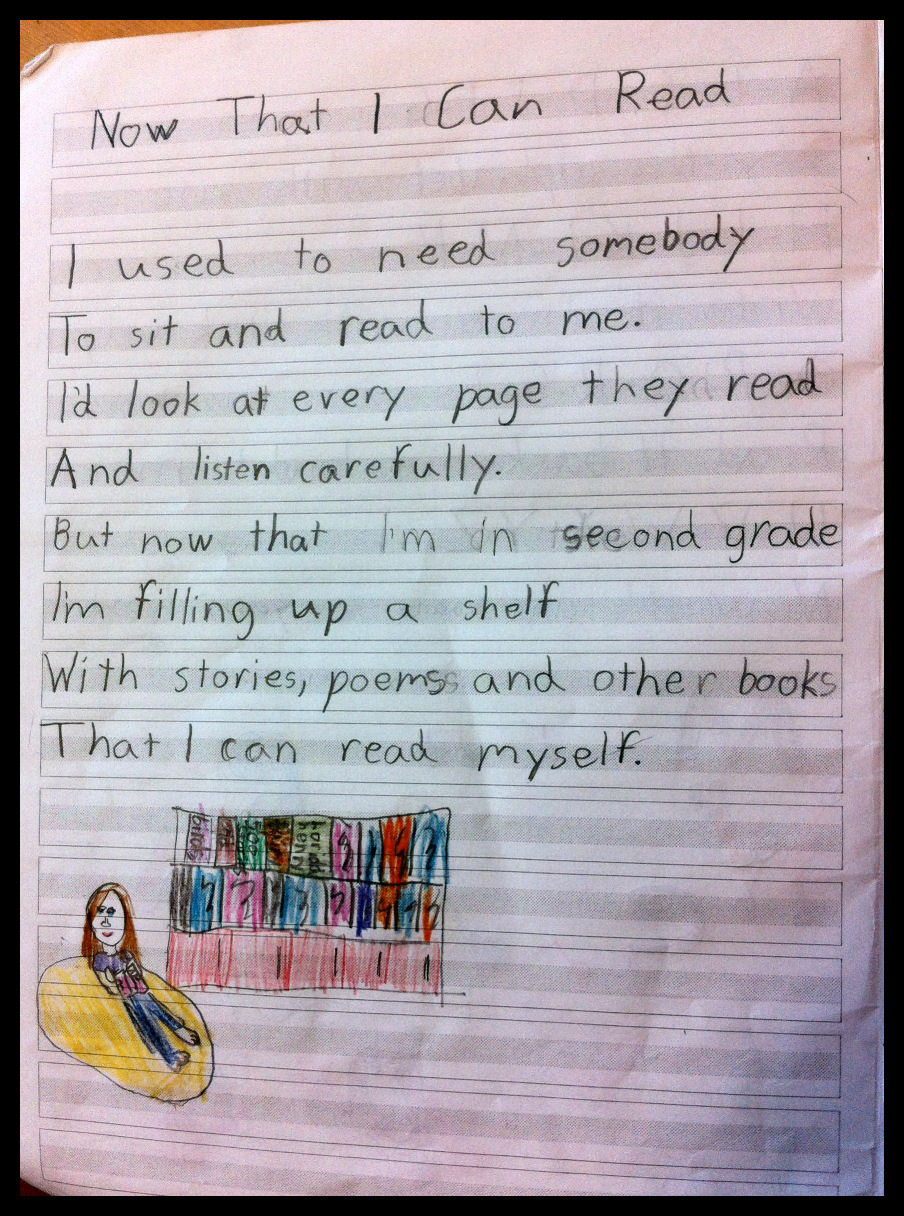 Now That I Can Read
I used to need somebody
To sit and read to me.
I'd look at every page they read
And listen carefully.
But now that I'm in second grade
I'm filling up a shelf
With stories, poems and other books
That I can read myself.